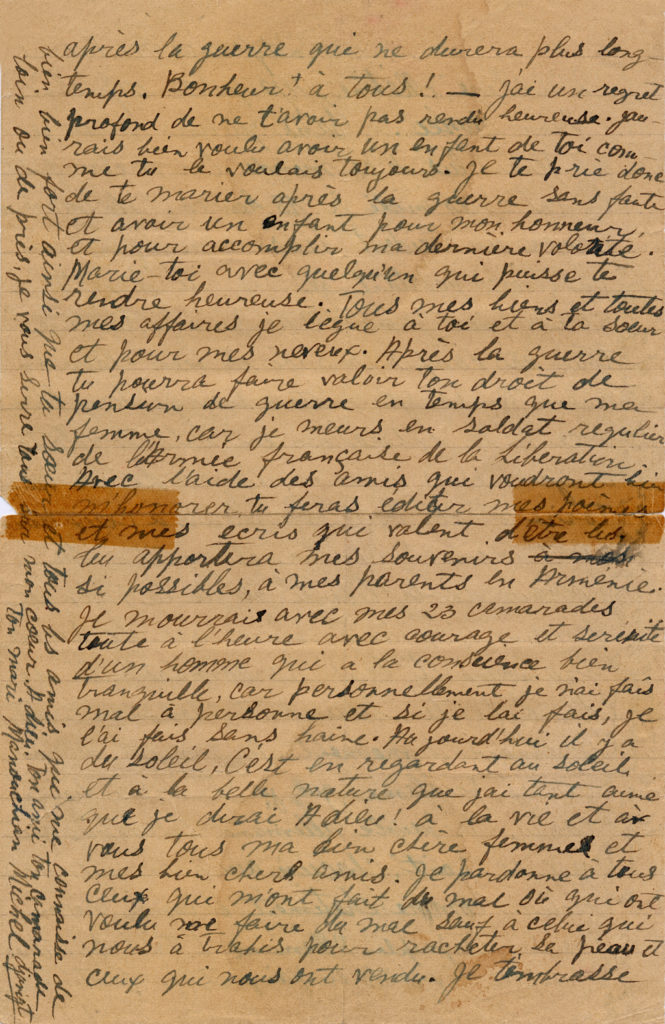 après la guerre qui ne durera plus long-
temps. Bonheur ! à tous ! — j'ai un regret
profond de ne t'avoir pas rendu heureuse. jau-
rais bien voulu avoir un enfant de toi com-
me tu le voulais toujours. Je te prie donc
de te marier après la guerre sans faute
et avoir un enfant pour mon honneur,
et pour accomplir ma dernière volonté.
Marie-toi avec quelqu'un qui puisse te
rendre heureuse. Tous mes biens et toutes
mes affaires je lègue à toi et à ta sœur
et pour mes neveux. Après la guerre
tu pourra faire valoir ton droit de
pension de guerre en temps que ma
femme, car je meurs en soldat regulier
de l'Armée française de la Libération.
Avec l'aide des amis qui voudront bien
m'honorer, tu feras editer mes poèmes
et mes ecris qui valent d'être lus.
tu apportera mes souvenirs a mes
si possibles, à mes parents en Arménie.
Je mourrais avec mes 23 camarades
toute à l'heure avec courage et serénité
d'un homme qui a la conscience bien
tranquille, car personnellement je n'ai fais
mal à personne et si je lai fais, je
l'ai fais sans haine. Aujourd'hui il y a
du soleil, C'est en regardant au soleil
et à la belle nature que jai tant aimé
que je dirai Adieu ! à la vie et à
vous tous ma bien chère femme et
mes bien chers amis. Je pardonne à tous
ceux qui m'ont fait du mal où qui ont
voulu me faire du mal sauf à celui qui
nous à trahis pour racheter sa peau et
ceux qui nous ont vendu. Je t'embrasse
bien bien fort ainsi que ta sœur et tous les amis qui me connaisse de
loin ou de près, je vous serre tous sur mon cœur. Adieu. Ton ami Ton camarade
Ton mari Manouchian Michel djanigt